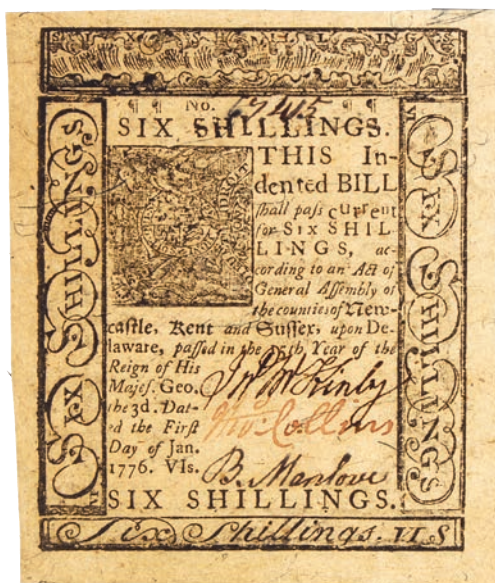 SIX SHILLINGS
¶ ¶ No. 67415 ¶ ¶
SIX SHILLINGS.
THIS In-
dented BILL
ſhall paſs current
for SIX SHIL-
LINGS, ac-
cording to an Act of
General Aſſembly of
the counties of New-
caſtle, Kent and Suſſex, upon De-
laware, paſſed in the 15th Year of the
Reign of His
Majeſ. Geo.
the 3d. Dat-
ed the Firſt
Day of Jan.
1776. VIs.
Jno. McKinly
Thos. Collins
B. Manlove
SIX SHILLINGS.
Six Shillings. VI S
SIX SHILLINGS
VI
SIX SHILLINGS